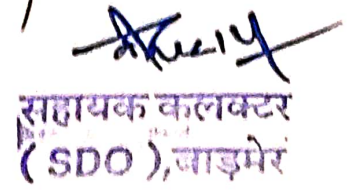 सहायक कलक्टर
( SDO ),बाड़मेर